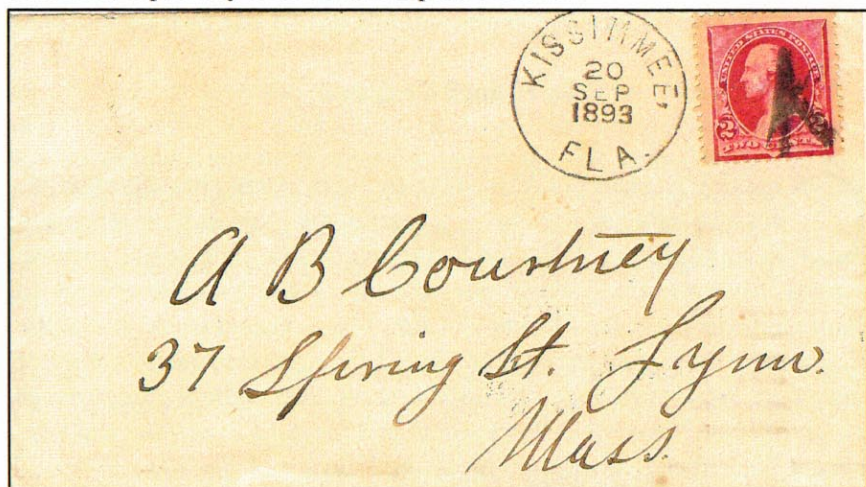 KISSIMMEE,
20
SEP
1893
FLA.
UNITED STATES POSTAGE
2 2
TWO CENTS
A B Courtney
37 Spring St. Lynn.
Mass.